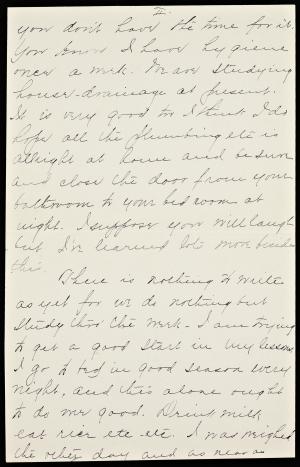 II.
you don't have the time for it.
You know I have hygiene
once a week. We are studying
house-drainage at present.
It is very good too I think. I do
hope all the plumbing etc is
allright at home and be sure
and close the door from your
bathroom to your bed room at
night. I suppose you will laugh
but I've learned lots more besides
this.
There is nothing to write
as yet for we do nothing but
study thro' the week - I am trying
to get a good start in my lessons
I go to bed in good season every
night, and this alone ought
to do me good. Drink milk
eat rice etc - etc. I was weighed
the other day and as near as